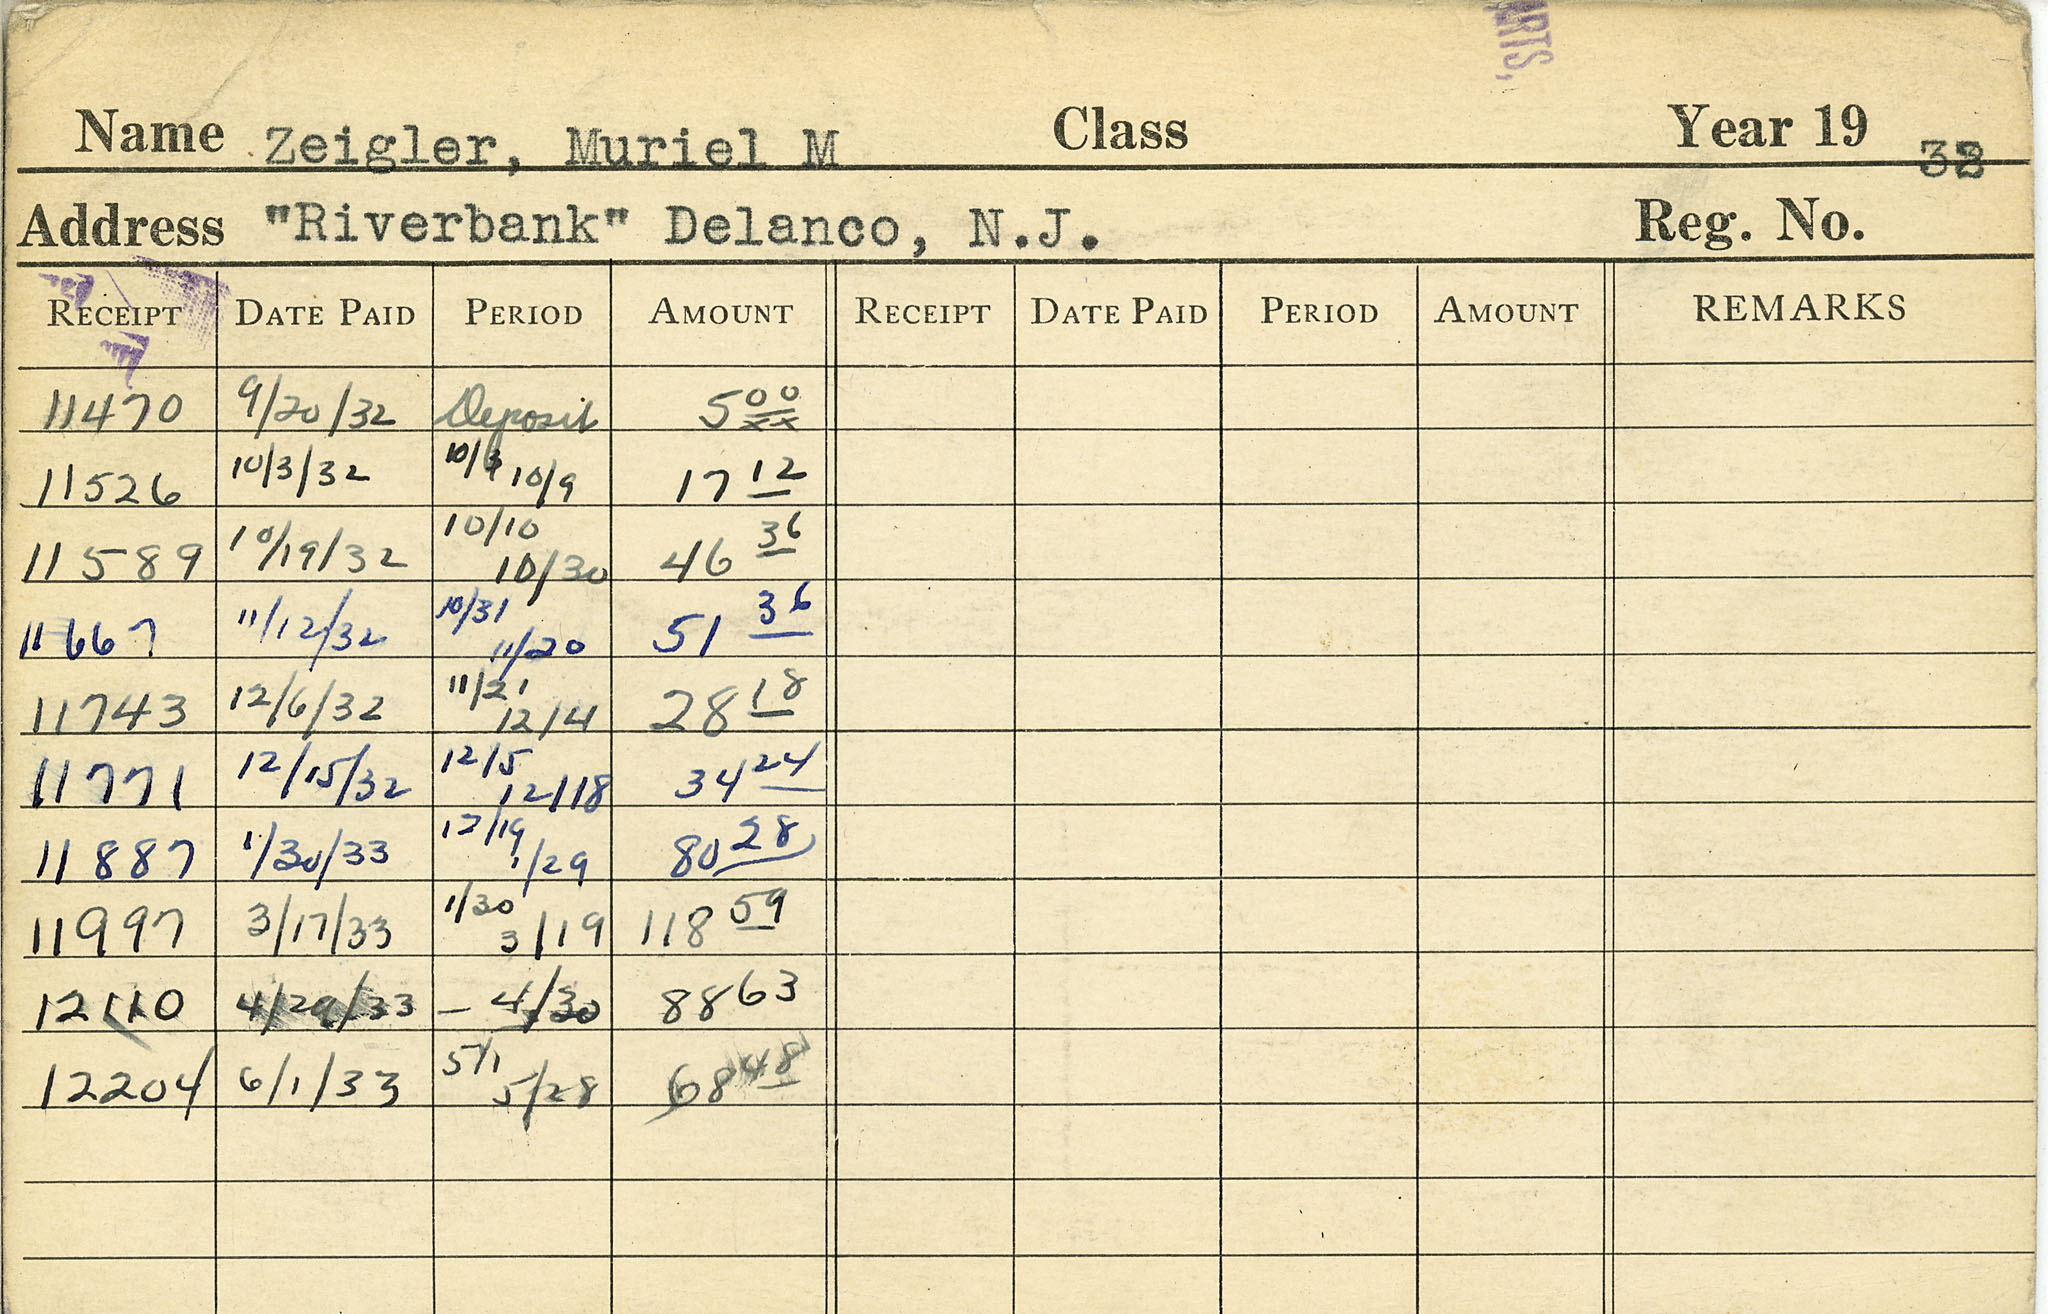 ARTS,
Name Zeigler, Muriel M Class Year 19 33
Address "Riverbank" Delanco, N.J. Reg. No.
RECEIPT DATE PAID PERIOD AMOUNT RECEIPT DATE PAID PERIOD AMOUNT REMARKS
11470 9/20/32 Deposit 5 00
11526 10/3/32 10/3 10/9 17 12
11589 10/19/32 10/10 10/30 46 36
11667 11/12/32 10/31 11/20 51 36
11743 12/6/32 11/21 12/4 28 18
11771 12/15/32 12/5 12/18 34 24
11887 1/30/33 12/19 1/29 80 28
11997 3/17/33 1/30 3/19 118 59
12110 4/29/33 - 4/30 88 63
12204 6/1/33 5/1 5/28 68 48